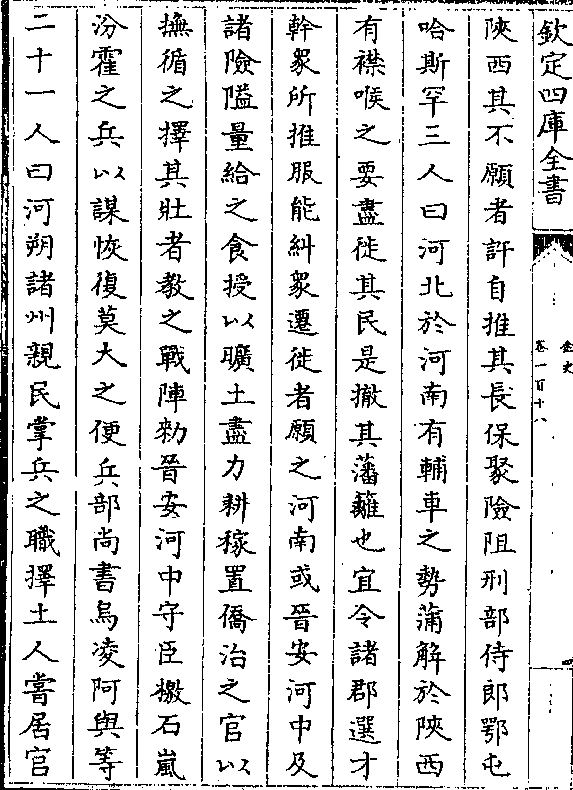 欽定四庫全書
金史
卷一百十八
陜西其不願者許自推其長保聚險阻刑部侍郎鄂屯
哈斯罕三人曰河北於河南有輔車之勢蒲解於陜西
有襟喉之要盡徙其民是撤其藩籬也宜令諸郡選才
幹衆所推服能糾衆遷徙者願之河南或晉安河中及
諸險隘量給之食授以曠土盡力耕稼置僑治之官以
撫循之擇其壯者教之戰陣勑晉安河中守臣檄石嵐
汾霍之兵以謀恢復莫大之便兵部尚書烏凌阿與等
二十一人曰河朔諸州親民掌兵之職擇土人嘗居官